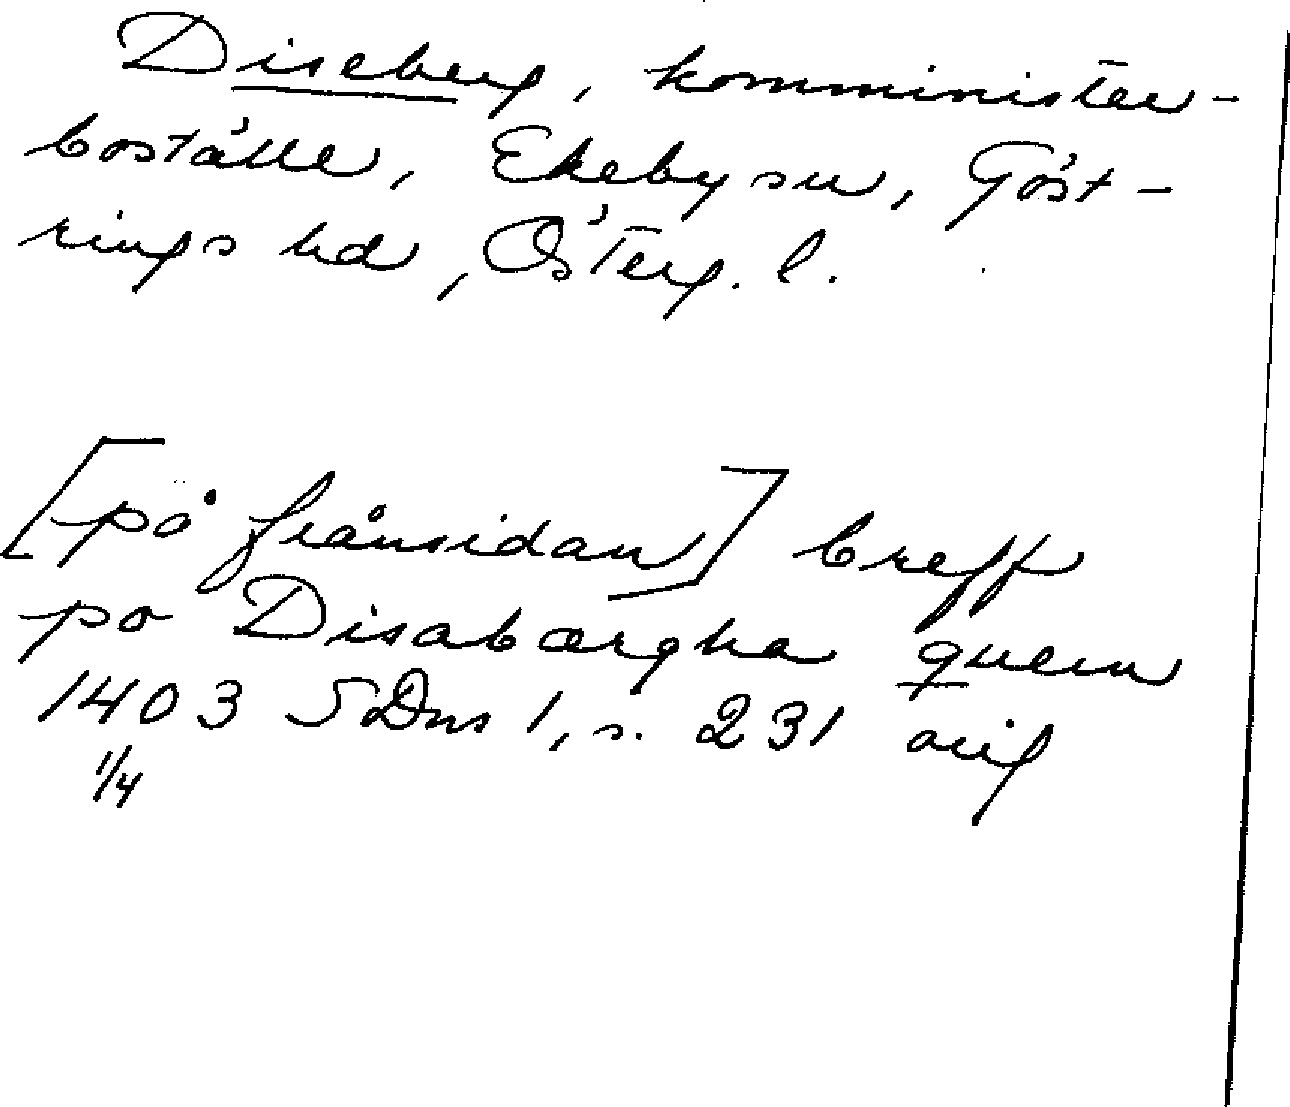 Diseberg, komminister-
boställe, Ekeby sn, Göst-
rings hd, Österg. l.
[på frånsidan] breff
po Disabærgha quern
1403 SDns 1, s. 231 orig
1/4